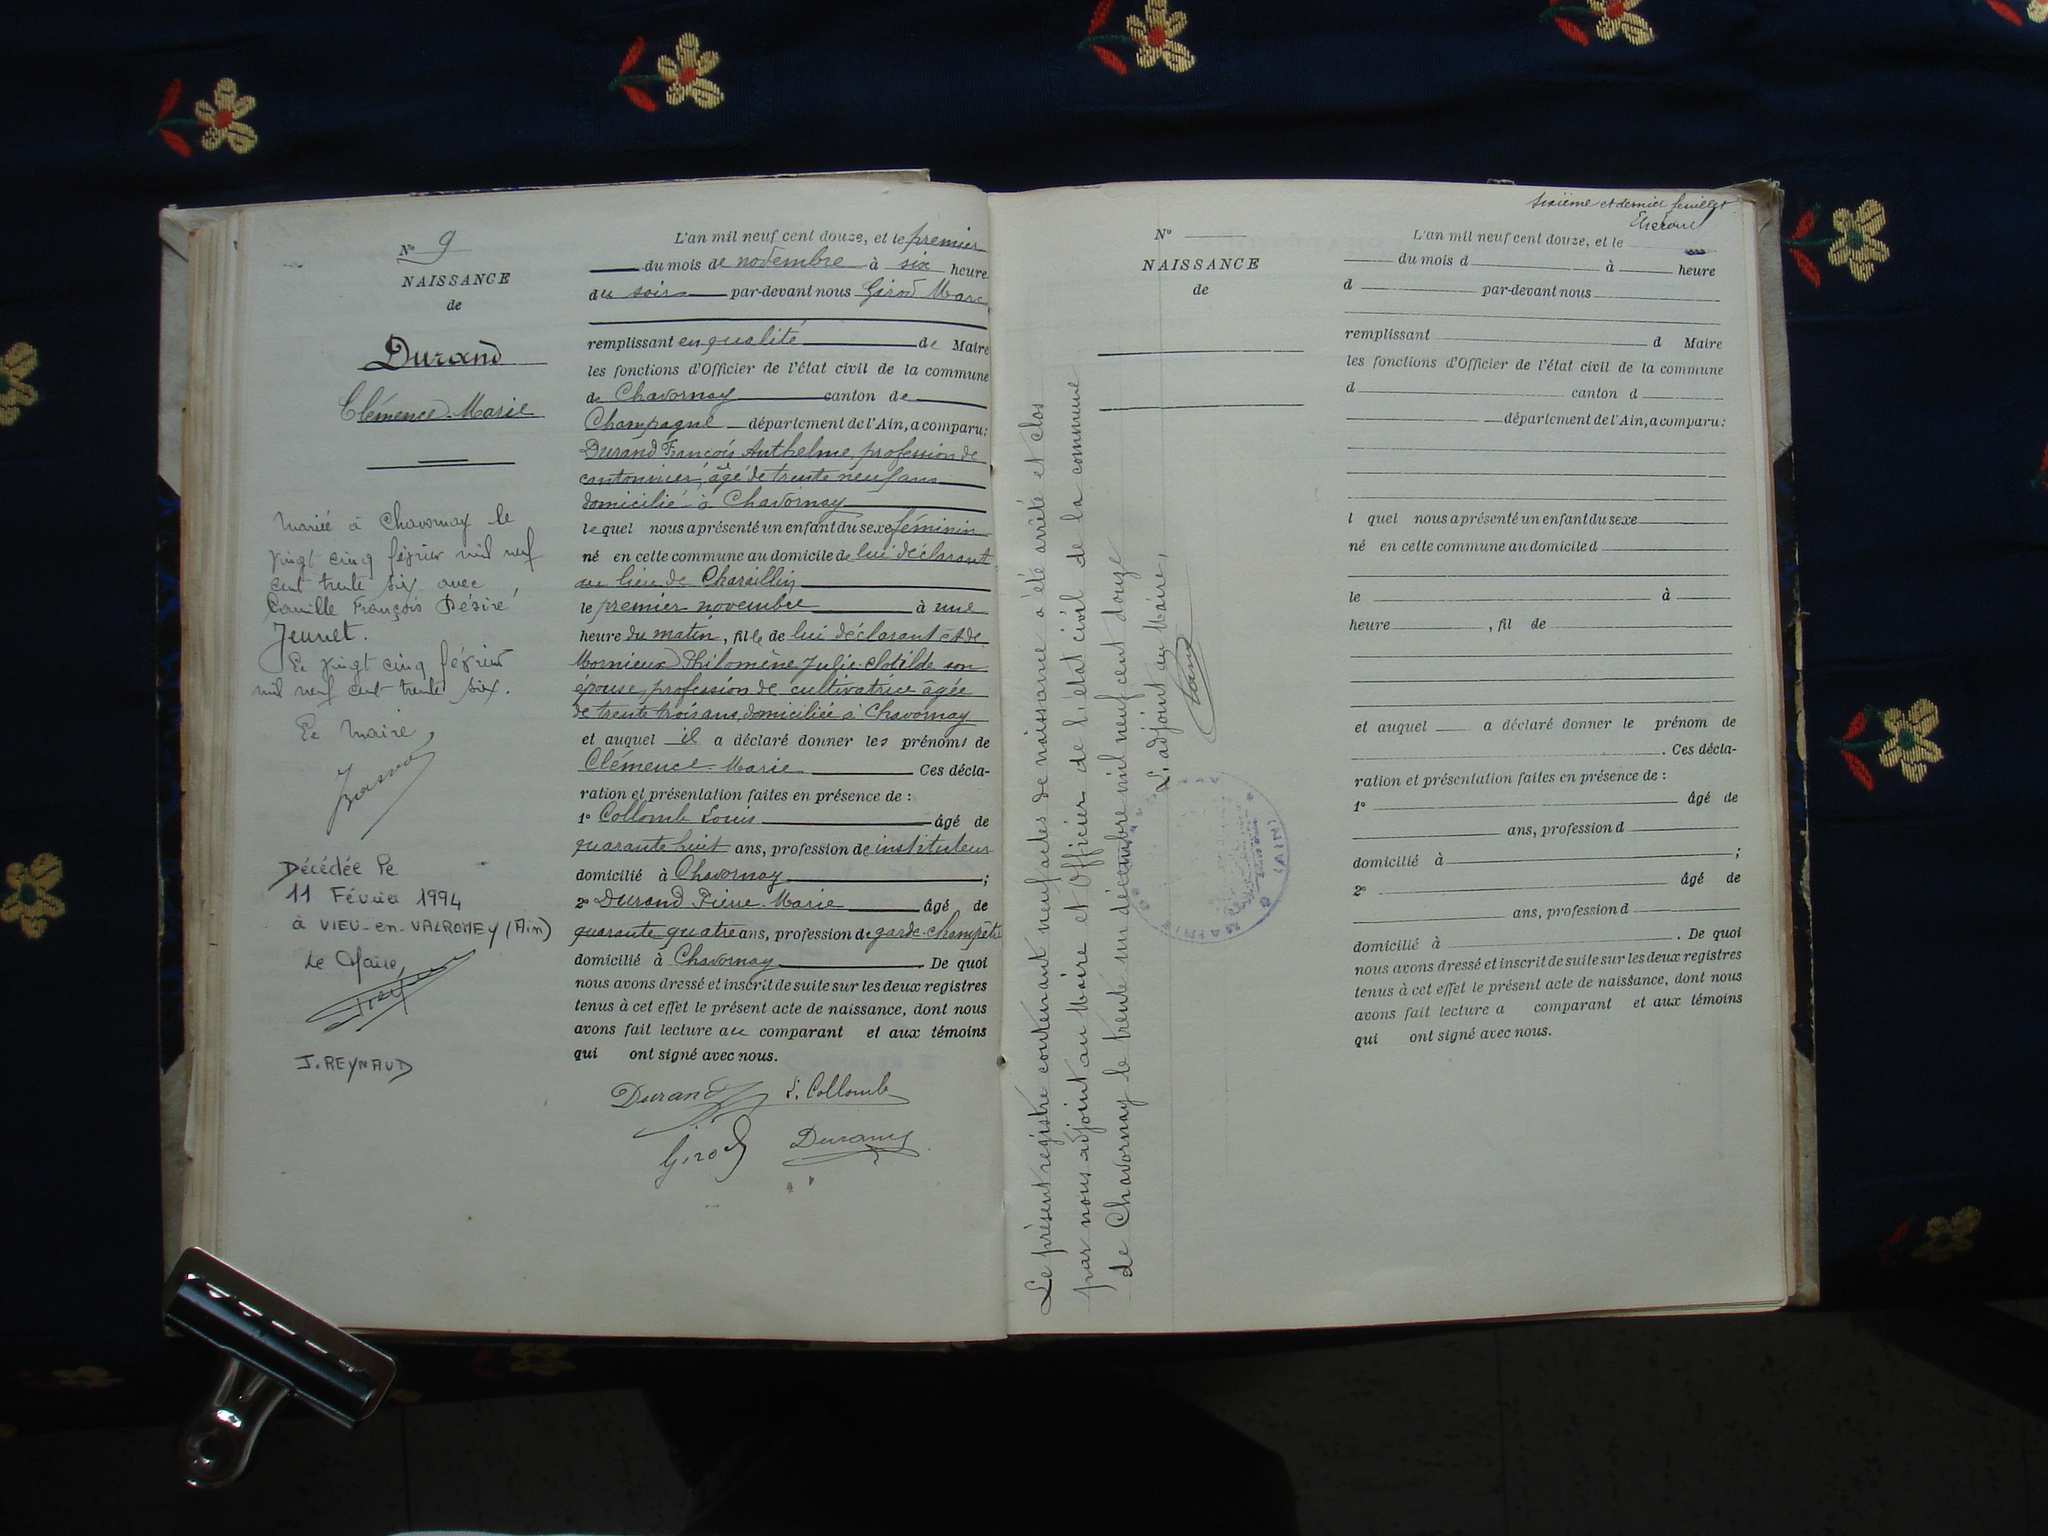 N° 9
NAISSANCE
de
Durand
Clémence-Marie
Mariée à Chavornay le
vingt cinq février mil neuf
cent trente six avec
Camille François Désiré
Jeunet.
Le vingt cinq février
mil neuf cent trente six.
Le Maire,
Décédée le
11 Février 1994
à VIEU-en-VALROMEY (Ain)
Le Maire,
J. REYNAUD
L'an mil neuf cent douze, et le premier
du mois de novembre à six heure
du soir par-devant nous Girod Marc
remplissant en qualité de Maire
les fonctions d'Officier de l'état civil de la commune
de Chavornay canton de
Champagne département de l'Ain, a comparu:
Durand François Anthelme, profession de
cantonnier, âgé de trente neuf ans
domicilié à Chavornay
lequel nous a présenté un enfant du sexe féminin
né en cette commune au domicile de lui déclarant
au lieu de Charaillin
le premier novembre à une
heure du matin, fille de lui déclarant et de
Mornieux Philomène Julie Clotilde son
épouse, profession de cultivatrice âgée
de trente trois ans, domiciliée à Chavornay
et auquel il a déclaré donner les prénoms de
Clémence-Marie Ces décla-
ration et présentation faites en présence de :
1° Collomb Louis âgé de
quarante huit ans, profession de instituteur
domicilié à Chavornay ;
2° Durand Pierre-Marie âgé de
quarante quatre ans, profession de garde-champêtre
domicilié à Chavornay De quoi
nous avons dressé et inscrit de suite sur les deux registres
tenus à cet effet le présent acte de naissance, dont nous
avons fait lecture au comparant et aux témoins
qui ont signé avec nous.
Durand L. Collomb
Girod Durand
Le présent registre contenant neuf actes de naissance a été arrêté et clos
par nous adjoint au Maire et Officier de l'état civil de la commune
de Chavornay le trente un décembre mil neuf cent douze
L'adjoint au Maire,
MAIRIE (AIN)
N°
NAISSANCE
de
sixième et dernier feuillet
L'an mil neuf cent douze, et le
du mois d à heure
d par-devant nous
remplissant d Maire
les fonctions d'Officier de l'état civil de la commune
d canton d
département de l'Ain, a comparu:
l quel nous a présenté un enfant du sexe
né en cette commune au domicile d
le à
heure , fil de
et auquel a déclaré donner le prénom de
. Ces décla-
ration et présentation faites en présence de :
1° âgé de
ans, profession d
domicilié à ;
2° âgé de
ans, profession d
domicilié à . De quoi
nous avons dressé et inscrit de suite sur les deux registres
tenus à cet effet le présent acte de naissance, dont nous
avons fait lecture a comparant et aux témoins
qui ont signé avec nous.